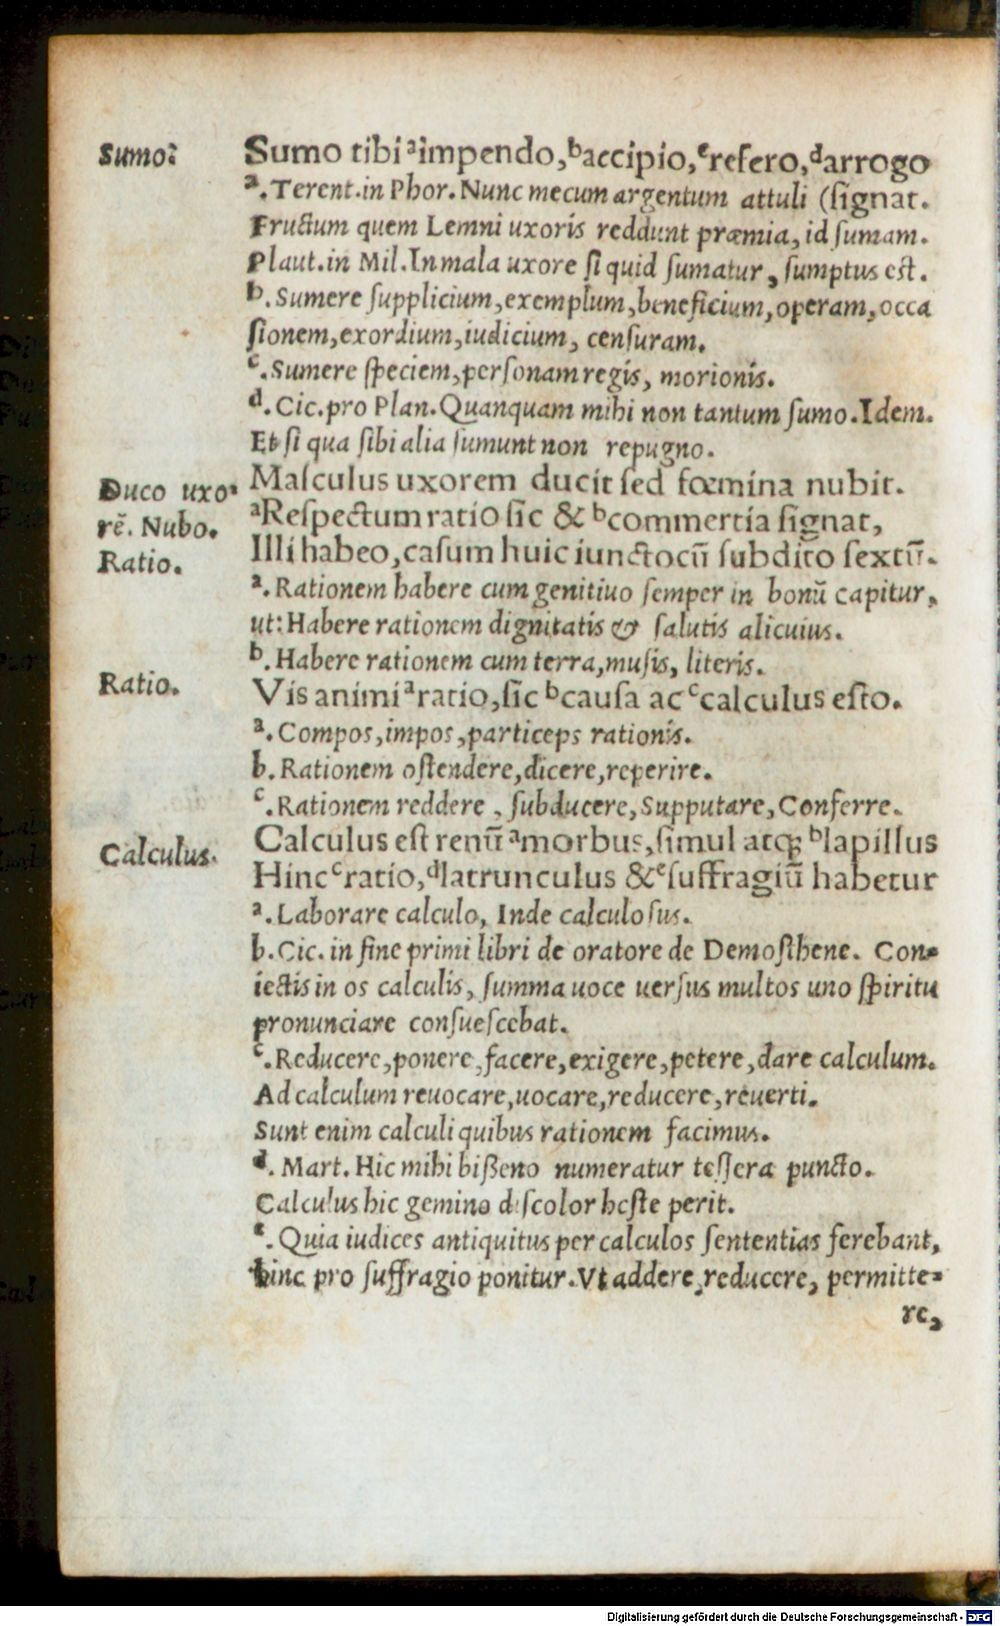 Sumo.
Sumo tibi ᵃimpendo, ᵇaccipio, ᶜrefero, ᵈarrogo
ᵃ. Terent. in Phor. Nunc mecum argentum attuli (ſignat.
Fructum quem Lemni uxoris reddunt præmia, id ſumam.
Plaut. in Mil. In mala uxore ſi quid ſumatur, ſumptus eſt.
ᵇ. Sumere ſupplicium, exemplum, beneficium, operam, occa
ſionem, exordium, iudicium, cenſuram.
ᶜ. Sumere ſpeciem, perſonam regis, morionis.
ᵈ. Cic. pro Plan. Quanquam mihi non tantum ſumo. Idem.
Et ſi qua ſibi alia ſumunt non repugno.
Duco uxo-
rē. Nubo.
Maſculus uxorem ducit ſed fœmina nubit.
ᵃReſpectum ratio ſic & ᵇcommertia ſignat,
Ratio.
Illi habeo, caſum huic iunctocū ſubdito ſextū.
ᵃ. Rationem habere cum genitiuo ſemper in bonū capitur,
ut: Habere rationem dignitatis & ſalutis alicuius.
ᵇ. Habere rationem cum terra, muſis, literis.
Ratio.
Vis animi ᵃratio, ſic ᵇcauſa ac ᶜcalculus eſto.
ᵃ. Compos, impos, particeps rationis.
b. Rationem oſtendere, dicere, reperire.
ᶜ. Rationem reddere, ſubducere, Supputare, Conferre.
Calculus.
Calculus eſt renū ᵃmorbus, ſimul atqꝫ ᵇlapillus
Hinc ᶜratio, ᵈlatrunculus & ᵉſuffragiū habetur
ᵃ. Laborare calculo, Inde calculoſus.
b. Cic. in fine primi libri de oratore de Demoſthene. Con-
iectis in os calculis, ſumma uoce uerſus multos uno ſpiritu
pronunciare conſueſcebat.
ᶜ. Reducere, ponere, facere, exigere, petere, dare calculum.
Ad calculum reuocare, uocare, reducere, reuerti.
Sunt enim calculi quibus rationem facimus.
ᵈ. Mart. Hic mihi biſſeno numeratur teſſera puncto.
Calculus hic gemino diſcolor hoſte perit.
ᵉ. Quia iudices antiquitus per calculos ſententias ferebant,
hinc pro ſuffragio ponitur. Vt addere, reducere, permitte-
re,
Digitalisierung gefördert durch die Deutsche Forschungsgemeinschaft - DFG